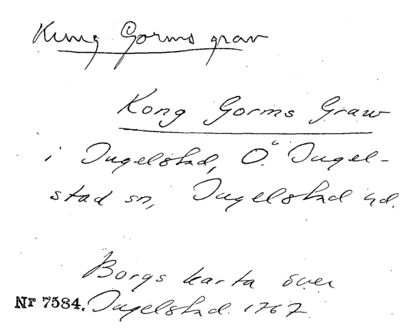 Kung Gorms grav
Kong Gorms Graw
i Ingelstad, Ö. Ingel-
stad sn, Ingelstad hd.
Borgs karta över
Nr 7584. Ingelstad. 1767